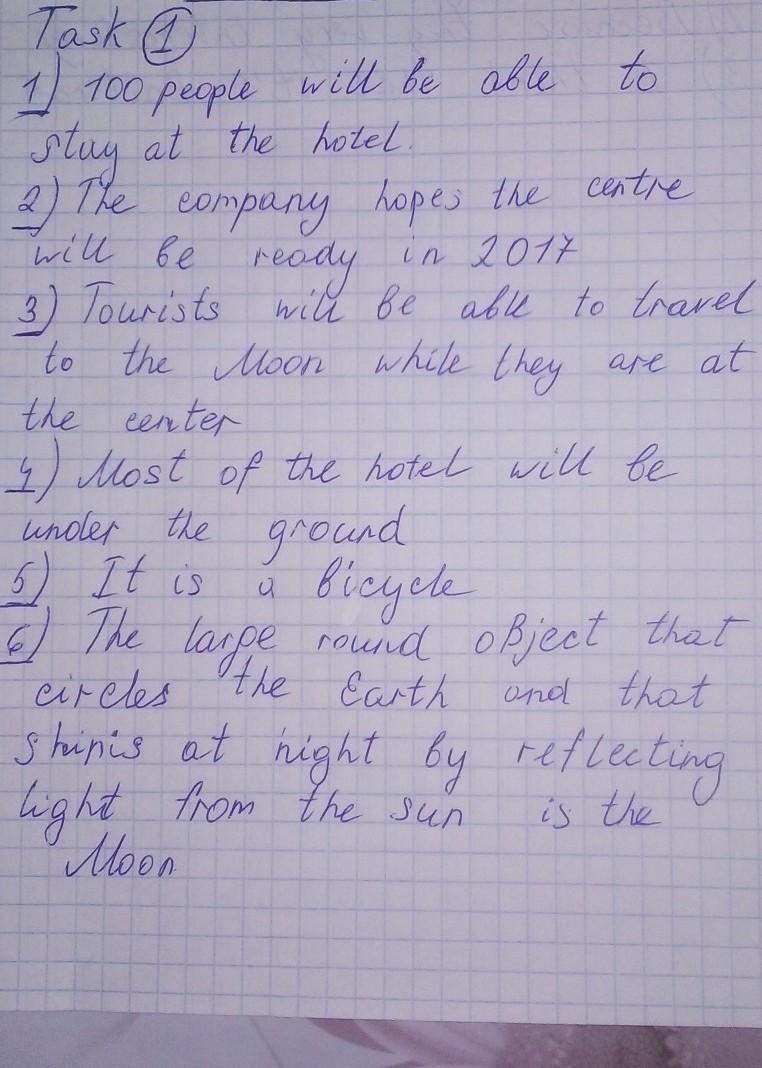 Task 1
1) 100 people will be able to
stay at the hotel.
2) The company hopes the centre
will be ready in 2017
3) Tourists will be able to travel
to the Moon while they are at
the center
4) Most of the hotel will be
under the ground
5) It is a bicycle
6) The large round object that
circles the Earth and that
shinis at night by reflecting
light from the sun is the
Moon